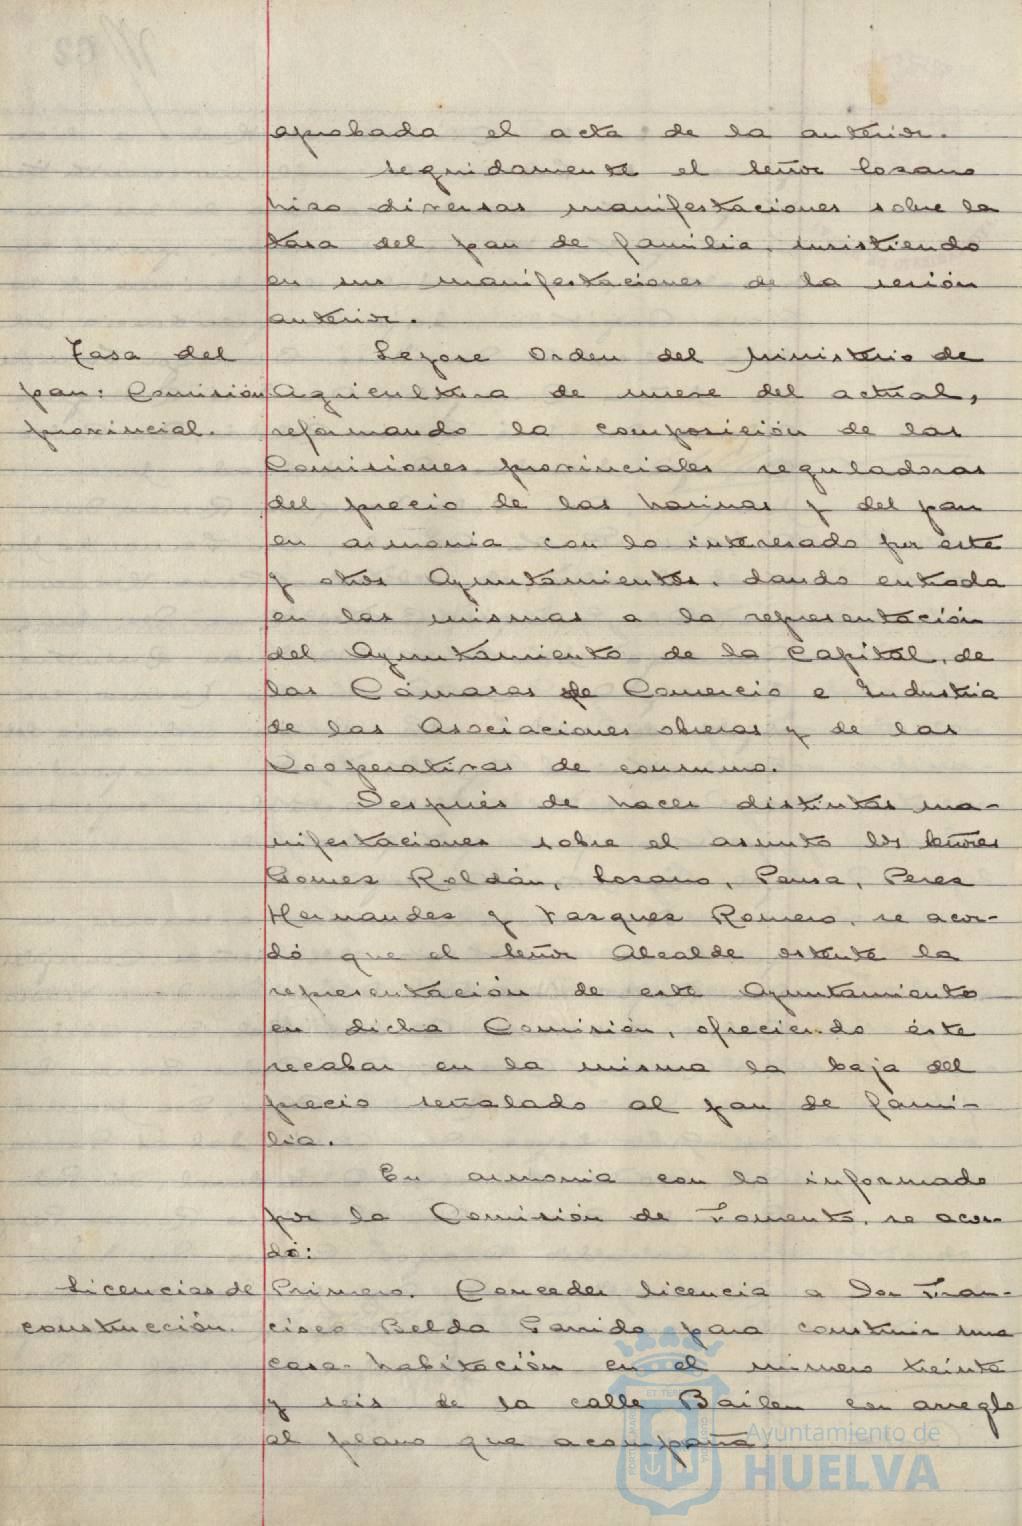 aprobada el acta de la anterior.
Seguidamente el señor Lozano
hizo diversas manifestaciones sobre la
tasa del pan de familia, insistiendo
en sus manifestaciones de la sesión
anterior.
Tasa del
pan: Comisión
provincial.
Leyose Orden del Ministerio de
Agricultura de nueve del actual,
reformando la composición de las
Comisiones provinciales reguladoras
del precio de las harinas y del pan
en armonia con lo interesado por éste
y otros Ayuntamientos, dando entrada
en las mismas a la representación
del Ayuntamiento de la Capital, de
las Cámaras de Comercio e Industria
de las Asociaciones obreras y de las
Cooperativas de consumo.
Después de hacer distintas ma-
nifestaciones sobre el asunto los señores
Gomez Roldán, Lozano, Perez
Hernandez y Vazquez Romero, se acor-
dó que el señor Alcalde ostente la
representación de este Ayuntamiento
en dicha Comisión, ofreciendo éste
recabar en la misma la baja del
precio señalado al pan de fami-
lia.
En armonia con lo informado
por la Comisión de Fomento, se acor-
dó:
Licencias de
construcción.
Primero. Conceder licencia a Don Fran-
cisco Belda Garrido para construir una
casa-habitación en el número treinta
y seis de la calle Bailen con arreglo
al plano que acompaña.
Ayuntamiento de
HUELVA